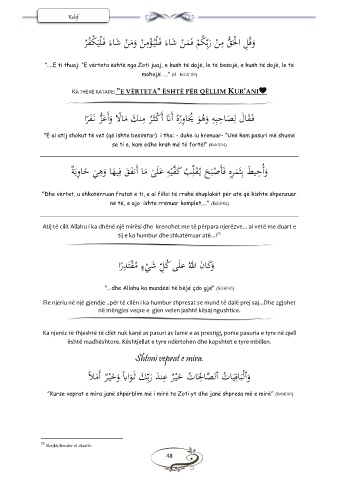 Kehf
وَقُلِ الْحَقُّ مِنْ رَبِّكُمْ فَمَنْ شَاءَ فَلْيُؤْمِنْ وَمَنْ شَاءَ فَلْيَكْفُرْ
"...E ti thuaj: "E vërteta është nga Zoti juaj, e kush të dojë, le të besojë, e kush të dojë, le të
mohojë. ..."
KA THËNË KATADE: "E VËRTETA" ËSHTË PËR QËLLIM KUR'ANI
فَقَالَ لِصَاحِبِهِ وَهُوَ يُحَاوِرُهُ أَنَا أَكْثَرُ مِنكَ مَالًا وَأَعَزُّ نَفَرًا
"E ai atij shokut të vet (që ishte besimtar) i tha: - duke iu krenuar- "Unë kam pasuri më shumë
se ti e, kam edhe krah më të fortë!"
وَأُحِيطَ بِثَمَرِهِ فَأَصْبَحَ يُقَلِّبُ كَفَّيْهِ عَلَى مَا أَنفَقَ فِيهَا وَهِيَ خَاوِيَةٌ
"Dhe vërtet, u shkatërruan frutat e ti, e ai filloi të rrahë shuplakët për atë që kishte shpenzuar
në të, e ajo ishte rrënuar komplet..."
Atij të cilit Allahu i ka dhënë një mirësi dhe krenohet me të përpara njerëzve... ai vetë me duart e
tij e ka humbur dhe shkatërruar atë...!
وَكَانَ اللَّهُ عَلَى كُلِّ شَيْءٍ مُقْتَدِرًا
"...dhe Allahu ka mundësi të bëjë çdo gjë"
Fle njeriu në një gjendje ..për të cilën i ka humbur shpresat se mund të dalë prej saj...Dhe zgjohet
në mëngjes veçse e gjen veten jashtë kësaj ngushtice.
Ka njerëz të thjeshtë të cilët nuk kanë as pasuri as famë e as prestigj, porse pasuria e tyre në qiell
është madhështore. Kështjellat e tyre ndërtohen dhe kopshtet e tyre mbillen.
Shtoni veprat e mira.
وَالْبَاقِيَاتُ الصَّالِحَاتُ خَيْرٌ عِندَ رَبِّكَ ثَوَاباً وَخَيْرٌ أَمَلاً
"Kurse veprat e mira janë shpërblim më i mirë te Zoti yt dhe janë shpresa më e mirë"
48